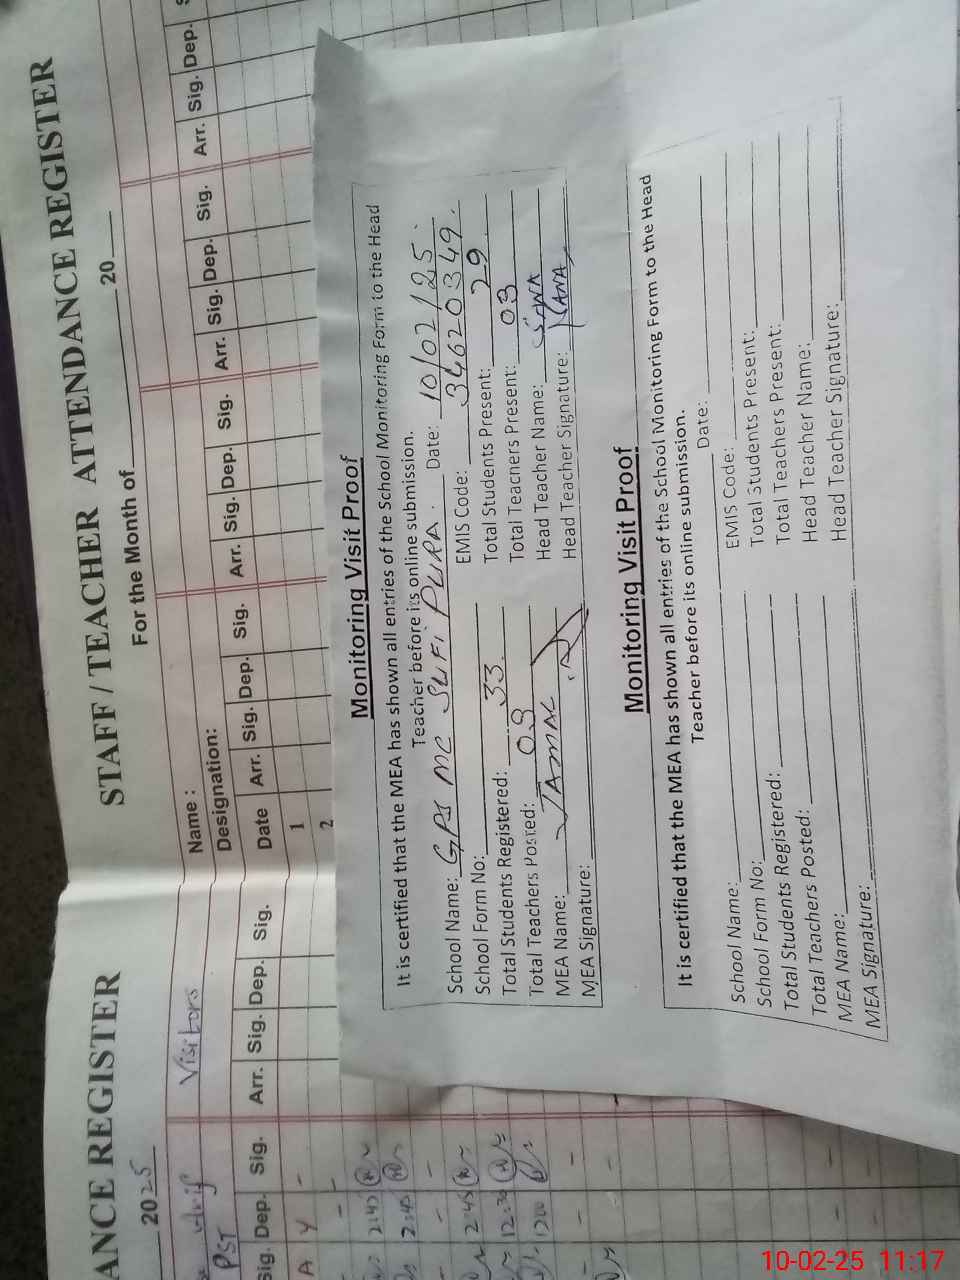 ANCE REGISTER
2025
Visitors
PST
Sig. Dep. Sig. Arr. Sig. Dep. Sig.
A Y - -
2:45
2:45
2:45
12:30
1200
STAFF / TEACHER ATTENDANCE REGISTER
For the Month of 20
Name :
Designation:
Date Arr. Sig. Dep. Sig. Arr. Sig. Dep. Sig. Arr. Sig. Dep. Sig. Arr. Sig. Dep.
1
2
Monitoring Visit Proof
It is certified that the MEA has shown all entries of the School Monitoring Form to the Head
Teacher before its online submission.
School Name: GPS MC SUFI PURA. Date: 10/02/25.
School Form No: EMIS Code: 34620349.
Total Students Registered: 33 Total Students Present: 29
Total Teachers Posted: 03 Total Teachers Present: 03
MEA Name: JAMAL Head Teacher Name:
MEA Signature: Head Teacher Signature:
Monitoring Visit Proof
It is certified that the MEA has shown all entries of the School Monitoring Form to the Head
Teacher before its online submission.
School Name: Date:
School Form No: EMIS Code:
Total Students Registered: Total Students Present:
Total Teachers Posted: Total Teachers Present:
MEA Name: Head Teacher Name:
MEA Signature: Head Teacher Signature:
10-02-25 11:17